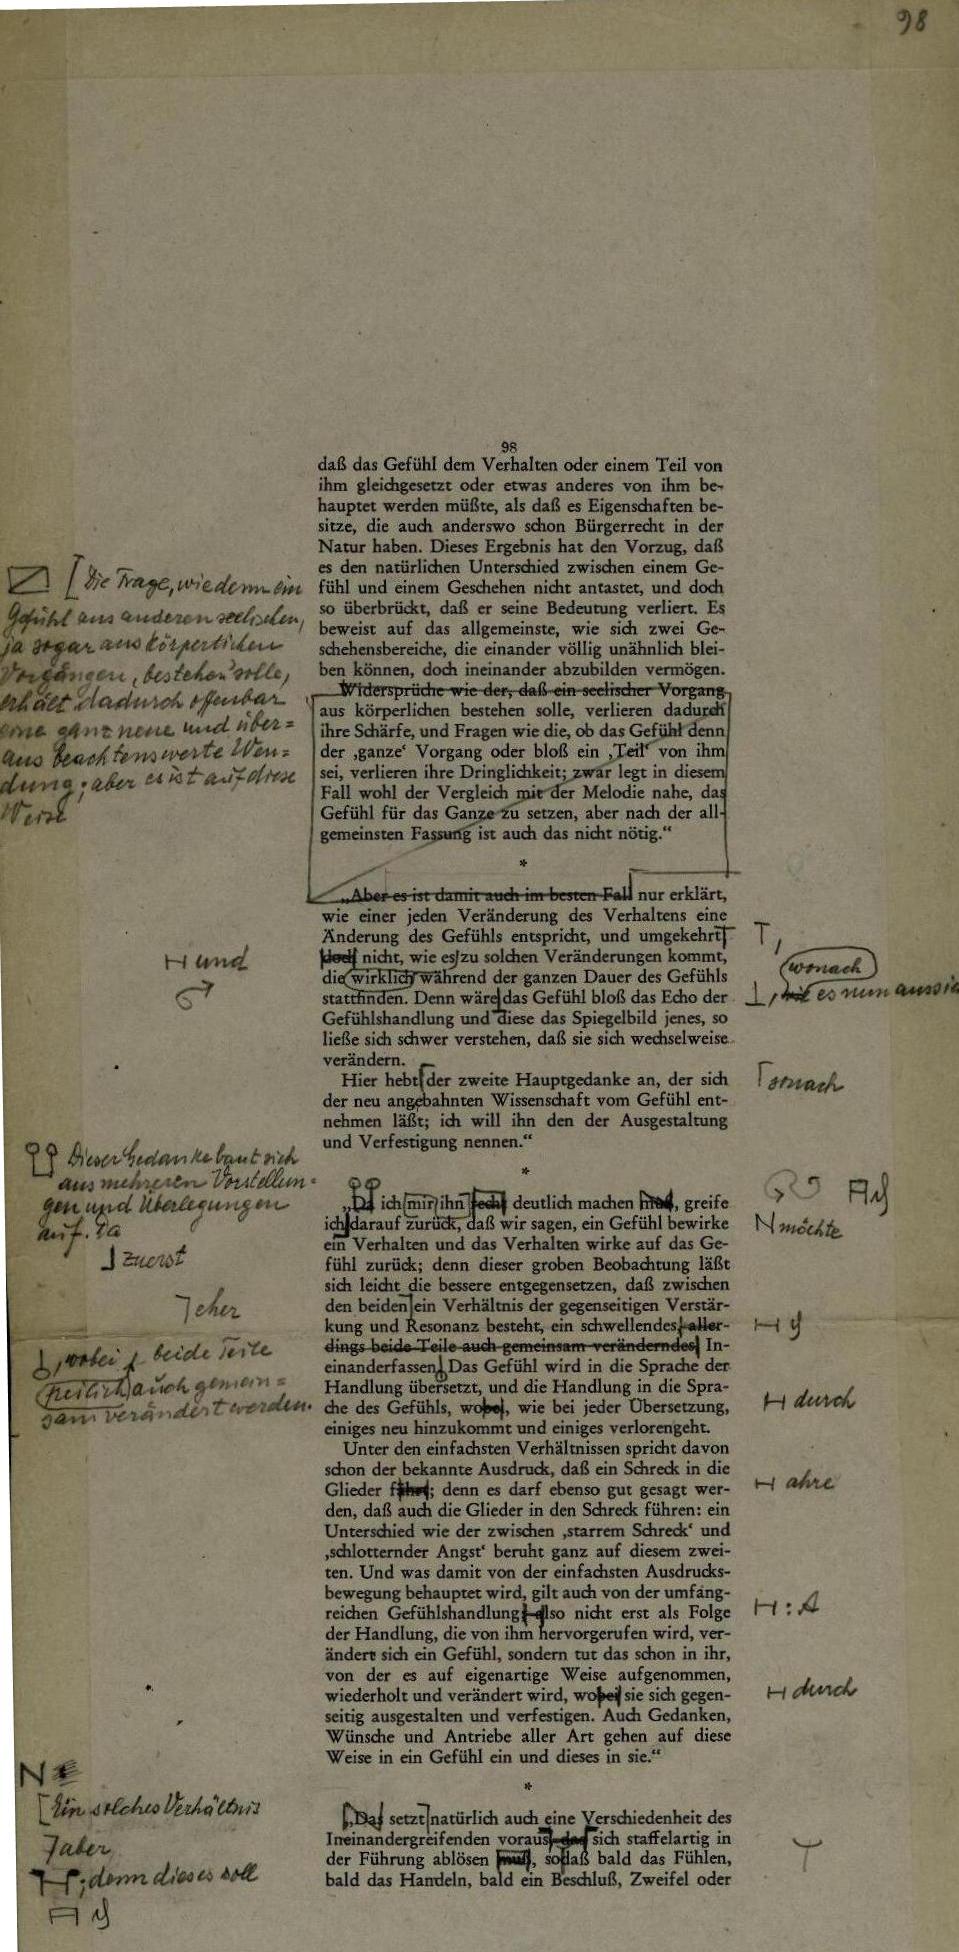 98
98
daß das Gefühl dem Verhalten oder einem Teil von
ihm gleichgesetzt oder etwas anderes von ihm be-
hauptet werden müßte, als daß es Eigenschaften be-
sitze, die auch anderswo schon Bürgerrecht in der
Natur haben. Dieses Ergebnis hat den Vorzug, daß
es den natürlichen Unterschied zwischen einem Ge-
fühl und einem Geschehen nicht antastet, und doch
so überbrückt, daß er seine Bedeutung verliert. Es
beweist auf das allgemeinste, wie sich zwei Ge-
schehensbereiche, die einander völlig unähnlich blei-
ben können, doch ineinander abzubilden vermögen.
Die Frage, wie denn ein
Gefühl aus anderen seelischen,
ja sogar aus körperlichen
Vorgängen „bestehen" solle,
erhält dadurch offenbar
eine ganz neue und über=
aus beachtenswerte Wen=
dung; aber es ist auf diese
Weise
Widersprüche wie der, daß ein seelischer Vorgang
aus körperlichen bestehen solle, verlieren dadurch
ihre Schärfe, und Fragen wie die, ob das Gefühl denn
der ‚ganze‘ Vorgang oder bloß ein ‚Teil‘ von ihm
sei, verlieren ihre Dringlichkeit; zwar legt in diesem
Fall wohl der Vergleich mit der Melodie nahe, das
Gefühl für das Ganze zu setzen, aber nach der all-
gemeinsten Fassung ist auch das nicht nötig.“
*
„Aber es ist damit auch im besten Fall nur erklärt,
wie einer jeden Veränderung des Verhaltens eine
Änderung des Gefühls entspricht, und umgekehrt
doch nicht, wie es zu solchen Veränderungen kommt,
die wirklich während der ganzen Dauer des Gefühls
stattfinden. Denn wäre das Gefühl bloß das Echo der
Gefühlshandlung und diese das Spiegelbild jenes, so
ließe sich schwer verstehen, daß sie sich wechselweise
verändern.
und
,
wonach
, es nun aussi
Hier hebt der zweite Hauptgedanke an, der sich
der neu angebahnten Wissenschaft vom Gefühl ent-
nehmen läßt; ich will ihn den der Ausgestaltung
und Verfestigung nennen.“
sonach
*
Dieser Gedanke baut sich
aus mehreren Vorstellun=
gen und Überlegungen
auf. Da
zuerst
eher
, wobei beide Teile
freilich auch gemein=
sam verändert werden.
„Da ich mir ihn recht deutlich machen muß, greife
ich darauf zurück, daß wir sagen, ein Gefühl bewirke
ein Verhalten und das Verhalten wirke auf das Ge-
fühl zurück; denn dieser groben Beobachtung läßt
sich leicht die bessere entgegensetzen, daß zwischen
den beiden ein Verhältnis der gegenseitigen Verstär-
kung und Resonanz besteht, ein schwellendes, aller-
dings beide Teile auch gemeinsam veränderndes In-
einanderfassen. Das Gefühl wird in die Sprache der
Handlung übersetzt, und die Handlung in die Spra-
che des Gefühls, wobei, wie bei jeder Übersetzung,
einiges neu hinzukommt und einiges verlorengeht.
möchte
durch
Unter den einfachsten Verhältnissen spricht davon
schon der bekannte Ausdruck, daß ein Schreck in die
Glieder fährt; denn es darf ebenso gut gesagt wer-
den, daß auch die Glieder in den Schreck führen: ein
Unterschied wie der zwischen ‚starrem Schreck‘ und
‚schlotternder Angst‘ beruht ganz auf diesem zwei-
ten. Und was damit von der einfachsten Ausdrucks-
bewegung behauptet wird, gilt auch von der umfang-
reichen Gefühlshandlung; also nicht erst als Folge
der Handlung, die von ihm hervorgerufen wird, ver-
ändert sich ein Gefühl, sondern tut das schon in ihr,
von der es auf eigenartige Weise aufgenommen,
wiederholt und verändert wird, wobei sie sich gegen-
seitig ausgestalten und verfestigen. Auch Gedanken,
Wünsche und Antriebe aller Art gehen auf diese
Weise in ein Gefühl ein und dieses in sie.“
ahre
: A
durch
*
Ein solches Verhältnis
aber
; denn dieses soll
„Das setzt natürlich auch eine Verschiedenheit des
Ineinandergreifenden voraus, das sich staffelartig in
der Führung ablösen muß, so daß bald das Fühlen,
bald das Handeln, bald ein Beschluß, Zweifel oder